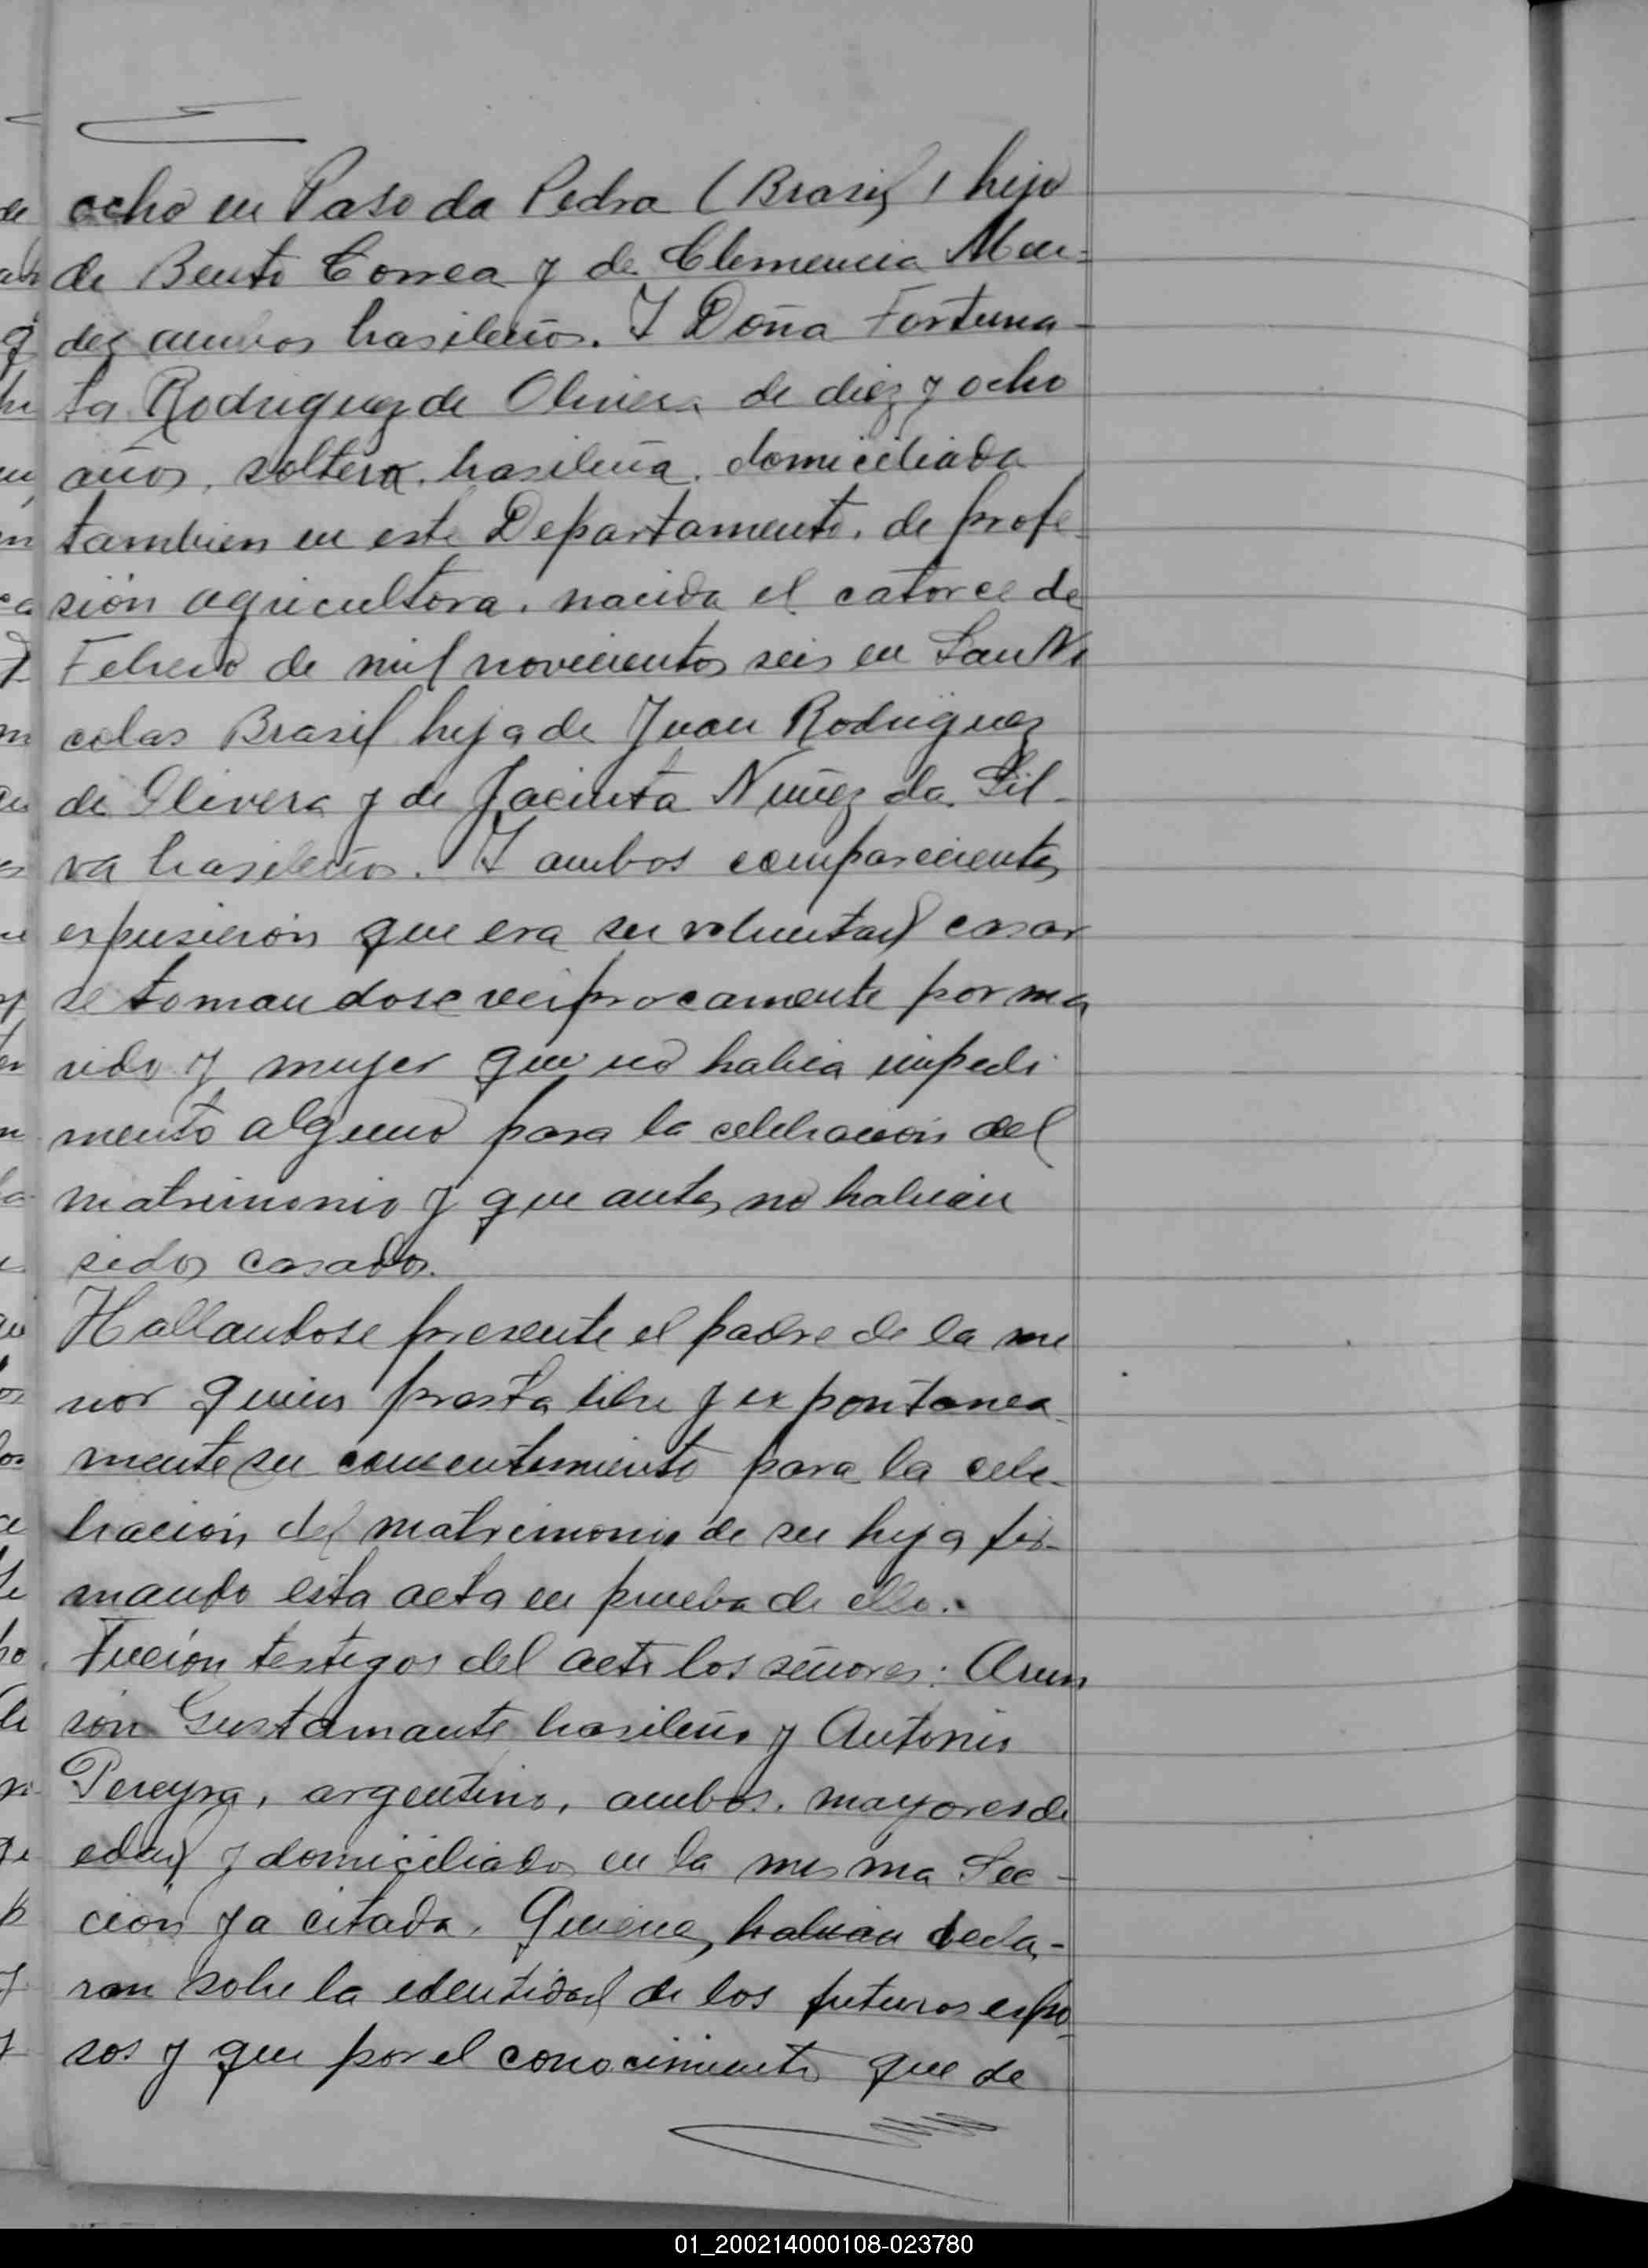 ocho en Paso da Pedra (Brasil) hijo
de Bento Correa y de Clemencia Men-
dez ambos brasileños. Y Doña Fortuna-
ta Rodriguez de Olivera de diez y ocho
años, soltera, brasileña, domiciliada
tambien en este Departamento, de profe-
sión agricultora, nacida el catorce de
Febrero de mil novecientos seis en San Ni
colas Brasil hija de Juan Rodriguez
de Olivera y de Jacinta Nuñez da Sil-
va brasileños. Y ambos comparecientes
expusieron que era su voluntad casar
se tomandose reciprocamente por ma
rido y mujer que no habia impedi
mento alguno para la celebracion del
matrimonio y que antes no habian
sidos casados.
Hallandose presente el padre de la me
nor quien presta libre y expontanea-
mente su consentimiento para la cele-
bracion del matrimonio de su hija fir-
mando esta acta en prueba de ello.
Fueron testigos del acto los señores: Asun
sion Gustamante brasileño y Antonio
Pereyra, argentino, ambos, mayores de
edad y domiciliados en la misma Sec-
ción ya citada. Quienes habian decla-
ran sobre la edentidad de los futuros espo-
sos y que por el conocimiento que de
01_200214000108-023780